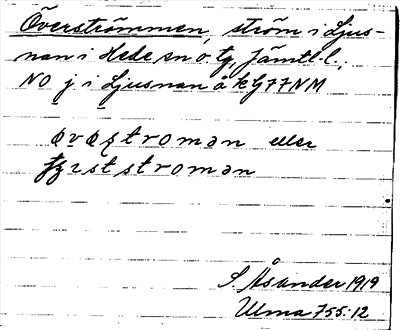 Överströmmen, ström i Ljus-
nan i Hede sn o. tg, Jämtl. l.
NO j i Ljusnan å kG77NM
øvøʂtroman eller
stroman
S. Åsander 1919
Ulma 755:12